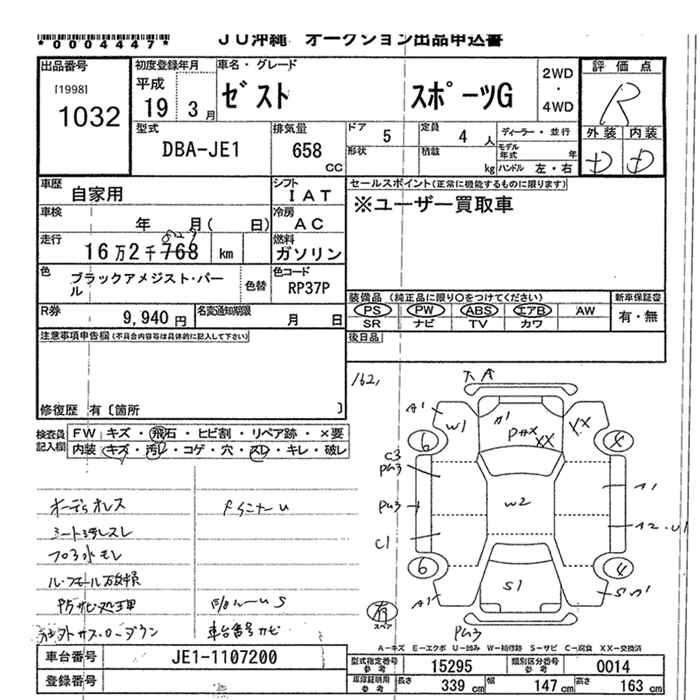 *0004447*
JU沖縄 オークション出品申込書
出品番号
[1998]
1032
初度登録年月
平成
19 3月
車名・グレード
ゼスト スポーツG
2WD
・
4WD
評価点
R
外装 内装
D D
型式
DBA-JE1
排気量
658
CC
ドア 5
形状
定員 4 人
積載 kg
ディーラー・並行
モデル年式 年
ハンドル 左・右
車歴
自家用
シフト
IAT
セールスポイント(正常に機能するものに限ります)
※ユーザー買取車
車検
年 月( 日)
冷房
AC
走行
16万2千768 km
829
燃料
ガソリン
色
ブラックアメジスト・パール
色替
色コード
RP37P
R券
9,940円
名変通知期限
月 日
装備品(純正品に限り○をつけてください)
PS PW ABS エアB AW
SR ナビ TV カワ
新車保証書
有・無
後日品
注意事項申告欄(不具合内容等は具体的に記入して下さい)
修復歴 有〔箇所 〕
検査員記入欄
FW キズ・飛石・ヒビ割・リペア跡・×要
内装 キズ・汚レ・コゲ・穴・スレ・キレ・破レ
オーディオレス
シートコゲスレ
防サビ処理車
車台番号カビ
162,
A'
W1
A'
XX
XX
6
×
C3
Pa3
Pa3
C1
W2
A1
A2・U1
6
4
S1
A'
有
スペア
Pa3
A-キズ E-エクボ U-凹み W-補修跡 S-サビ C-腐食 XX-交換済
車台番号 JE1-1107200
登録番号
型式指定番号参考 15295
類別区分番号参考 0014
車庫証明用参考 長さ 339cm 幅 147cm 高さ 163cm